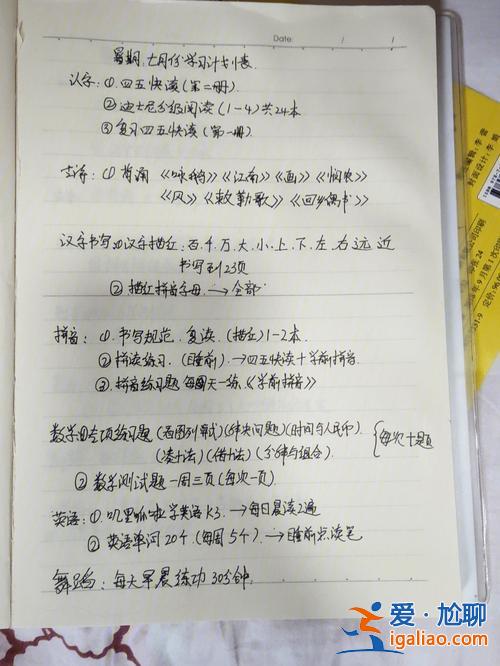 Date: / /
暑期:七月份学习计划表
认字:①四五快读(第二册)
②迪士尼分级阅读(1-4)共24本
③复习四五快读(第一册)
古诗:①背诵《咏鹅》《江南》《画》《悯农》
《风》《敕勒歌》《回乡偶书》
汉字书写:①汉字描红:百.千.万.大.小.上.下.左.右.远.近
书写到23页
②描红拼音字母.→全部
拼音:①书写规范.复读.(描红)1-2本.
②拼读练习.(睡前).→四五快读+学前拼音.
③拼音练习题 每周天一练《学前拼音》
数学:①专项练习题(看图列算式)(解决问题)(时间与人民币)
(凑十法)(借十法)(分解与组合)
{每次十题
②数学测试题一周三页(每次一页)
英语:①叽里呱啦学英语K3.→每日晨读2遍
②英语单词20个(每周5个).→睡前点读笔
舞蹈:每天早晨练功30分钟.
爱·尬聊
igaliao.com